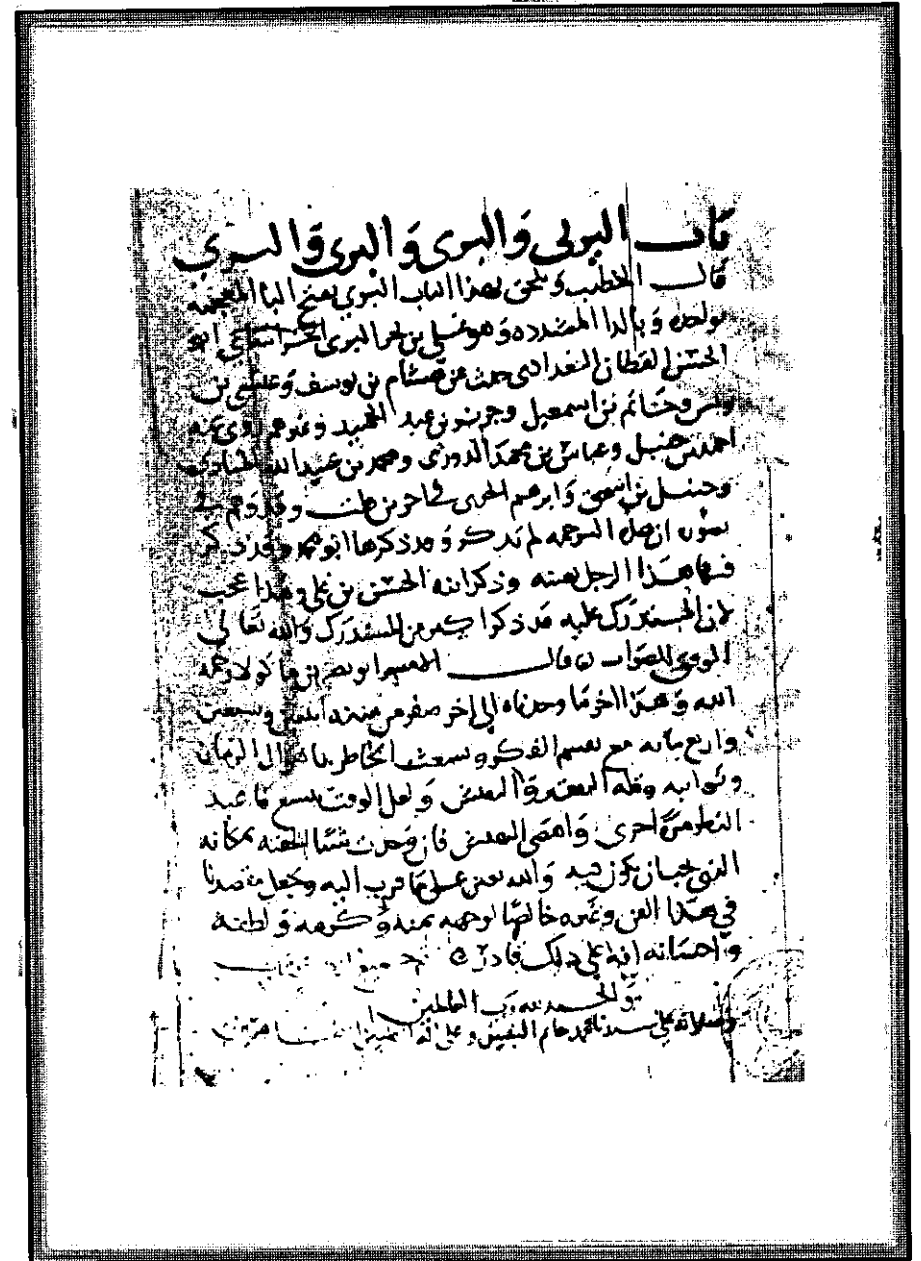 باب البرتي والبري والبري والبري
قال الخطيب ويلحق بهذا الباب البري بفتح البا المعجمه
بواحده وبالرا المشدده وهو علي بن بحر البري ابو
الحسن القطان البغدادي حدث عن هشام بن يوسف وعيسى بن
يونس وحاتم بن اسمعيل وجرير بن عبد الحميد وغيرهم روى عنه
احمد بن حنبل وعباس بن محمد الدوري ومحمد بن عبيد الله المنادي
وحنبل بن اسحق وابرهيم الحربي في اخرين قلت وقد وهم في
قوله ان هذه الترجمه لم تذكر وقد ذكرها ابو محمد وقد ذكر
فيها هذا الرجل بعينه وذكر ابنه الحسن بن علي وهذا عجب
لان المستدرك عليه قد ذكر اكثر من المستدرك والله تعالى
الموفق للصواب قال ابو نصر بن ماكولا رحمه
الله وهذا اخر ما وجدناه الى اخر صفر من سنه وسبعين
واربع مايه مع تقسم الفكر وتشعث الخاطر باهوال الزمان
ونوايبه وقله ولعل الوقت يتسع فاعيد
النظر مره اخرى فان وجدت شيا الحقته بمكانه
الذي يجب ان يكون فيه والله يعين على ما قرب اليه ويجعل مقصدنا
في هذا الفن وغيره خالصا لوجهه بمنه وكرمه ولطفه
واحسانه انه على ذلك قادر
والحمد لله رب العالمين
وصلاته على سيدنا محمد خاتم النبيين وعلى اله